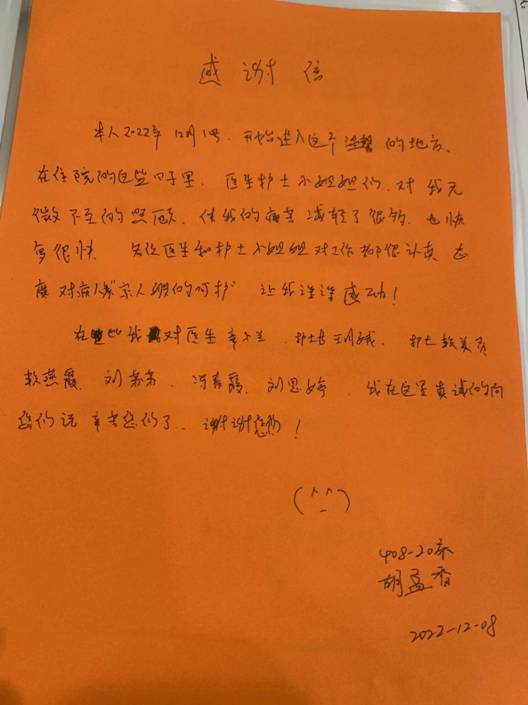 感谢信
本人2022年12月1号,开始进入这个温馨的地方。
在住院的这些日子里,医生护士小姐姐们,对我无
微不至的照顾,使我的痛苦减轻了很多,也恢
复很快,各位医生和护士小姐姐对工作都很认真,态
度对病人像亲人般的呵护,让我深深感动!
在此我对医生 护士长 护士
刘苏苏、冯春霞、刘思婷,我在这里真诚的向
您们说辛苦您们了..谢谢您们!
(^_^)
408-20床
胡孟香
2022-12-08